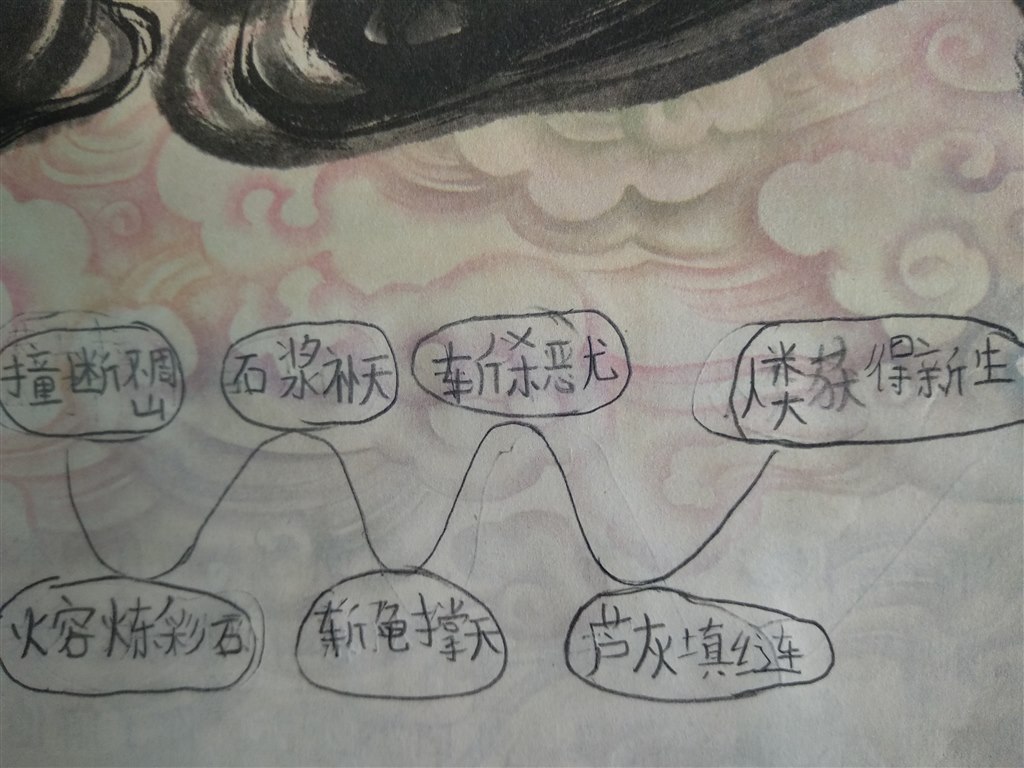 撞断不周山
石浆补天
斩杀恶龙
人类获得新生
熔炼彩石
斩龟撑天
芦灰填缝